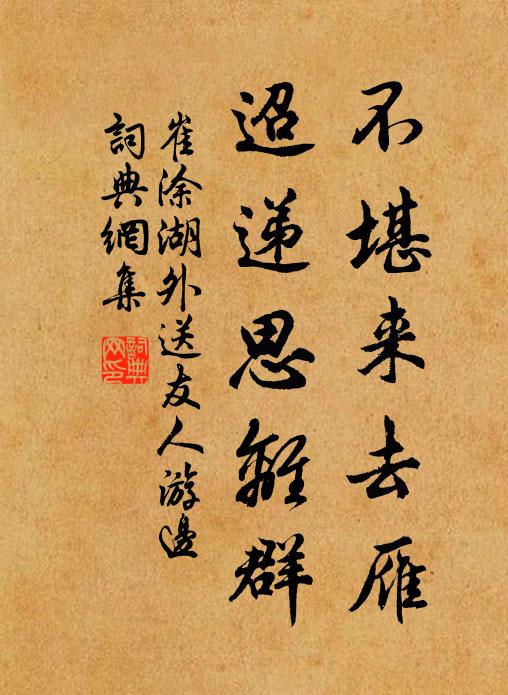 不堪来去雁
迢递思離群
崔涂湖外送友人游邊
詞典網集
詞典網印